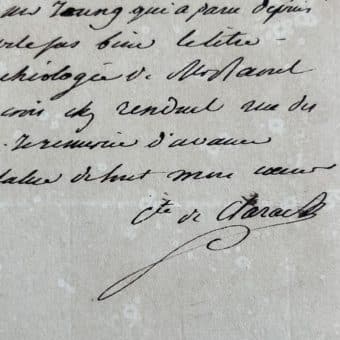 Young qui a paru depuis
pas bien le titre
chéologie de Mr Raoul
crois chez renduel rue des
Je remercie d'avance
salue de tout mon coeur
Cte de Clarac